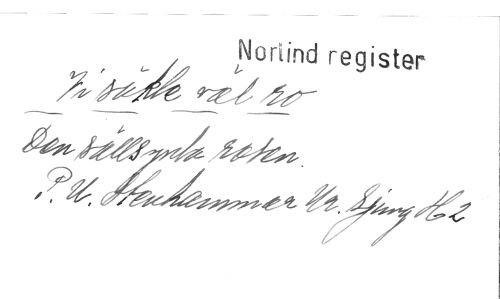 Norlind register
Vi sökte väl ro
Den sällsynta rosen.
P. U. Stenhammar Ur. Sjung H2